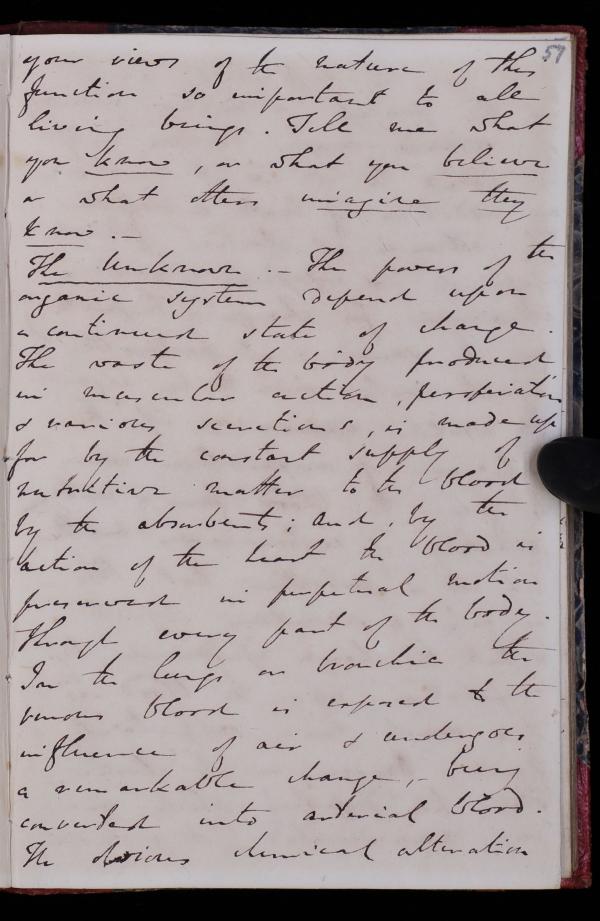 57
your views of the nature of this
function so important to all
living beings. Tell me what
you know, or what you believe
or what others imagine they
know. –
The Unknown. – The powers of the
organic system depend upon
a continued state of change.
The waste of the body produced
in muscular action, perspiration
& various secretions, is made up
for by the constant supply of
nutritive matter to the blood
by the absorbents; and, by the
action of the heart the blood is
preserved in perpetual motion
through every part of the body.
In the lungs or bronchia the
venous blood is exposed to the
influence of air & undergoes
a remarkable change, – being
converted into arterial blood.
The obvious chemical alteration